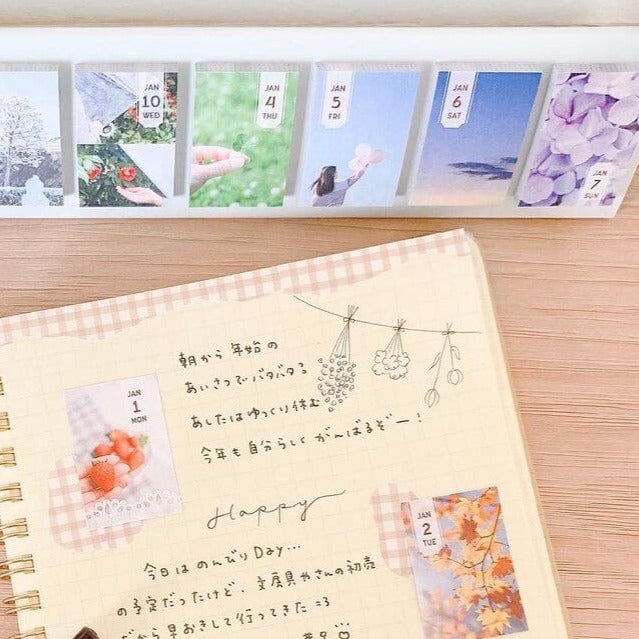 JAN
10
WED
JAN
4
THU
JAN
5
FRI
JAN
6
SAT
JAN
7
SUN
朝から年始の
あいさつでバタバタ
あしたはゆっくり休む
今年も自分らしくがんばるぞー!
JAN
1
MON
Happy
JAN
2
TUE
今日はのんびりDay...
の予定だったけど、文房具やさんの初売
だから早おきして行ってきた =3